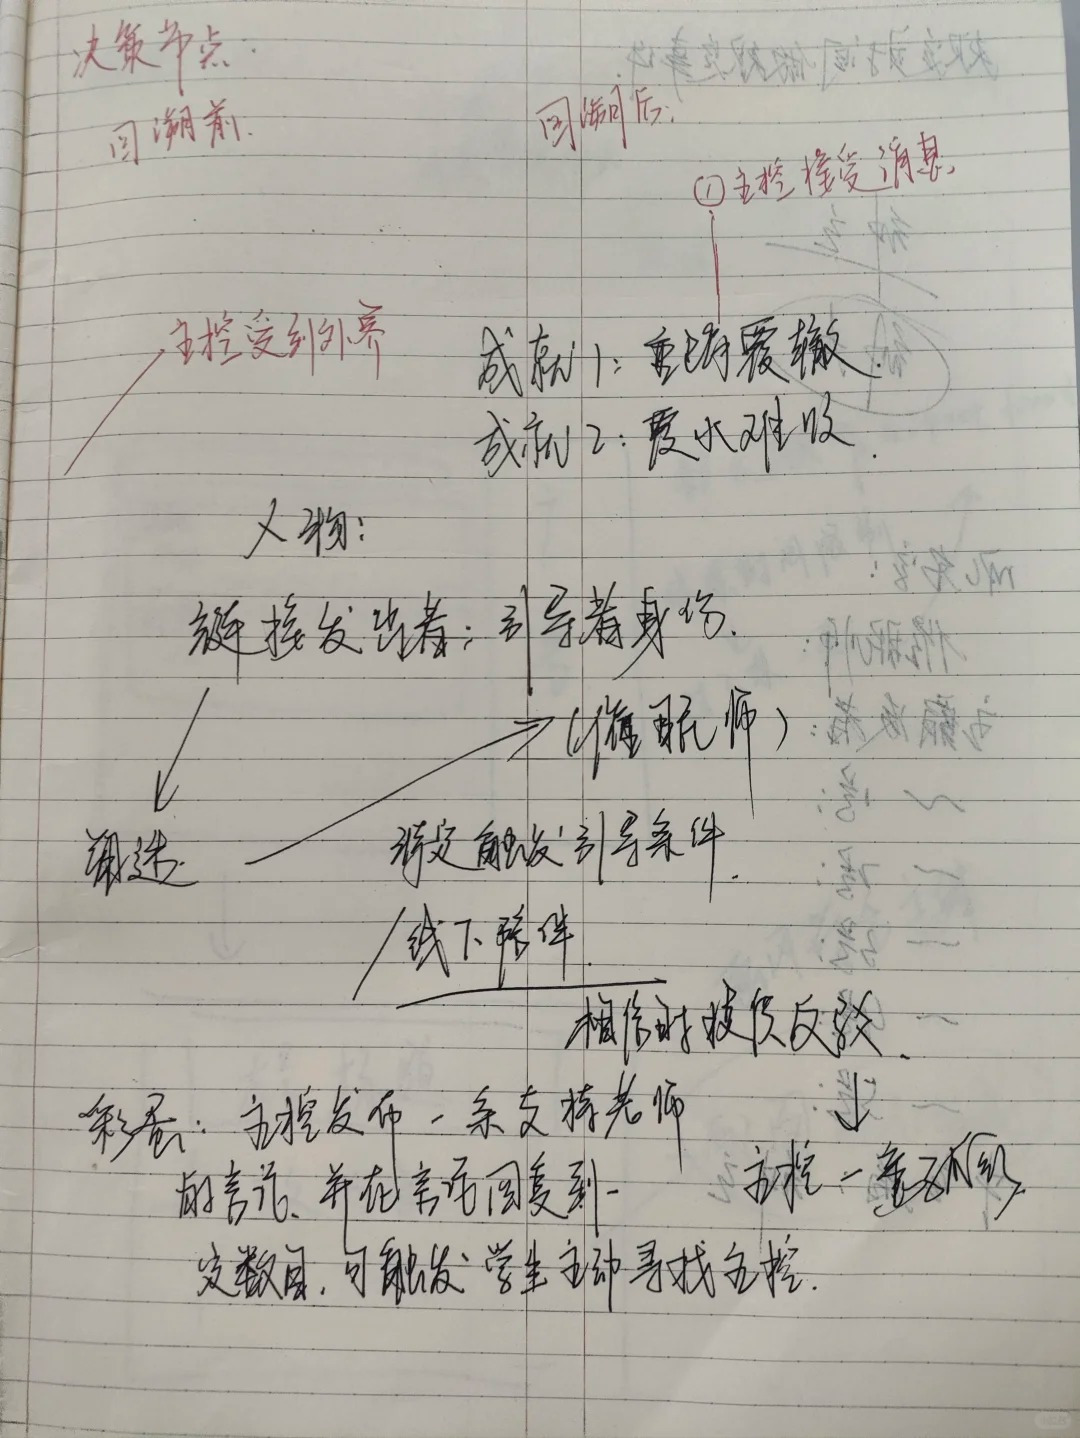 决策节点:
回溯前.
回溯后:
①主控接受消息
主控受到外界
成就1:重蹈覆辙.
成就2:覆水难收.
人物:
链接发出者:引导者身份.
(催眠师)
触发引导条件.
线下
相信时 反驳.
彩蛋:主控发布一条支持老师
的言论、并在言论回复到一
定数目,可触发学生主动寻找主控.
主控一